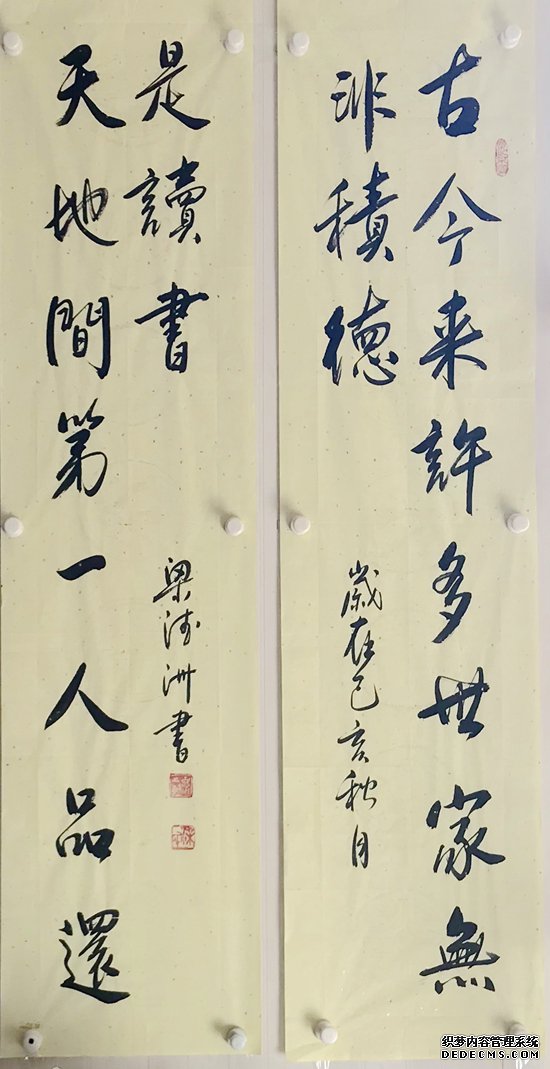 古今来許多世家無
非積德
歲在己亥秋月
天地間第一人品還
是讀書
梁洲書
织梦内容管理系统
DEDECMS.COM